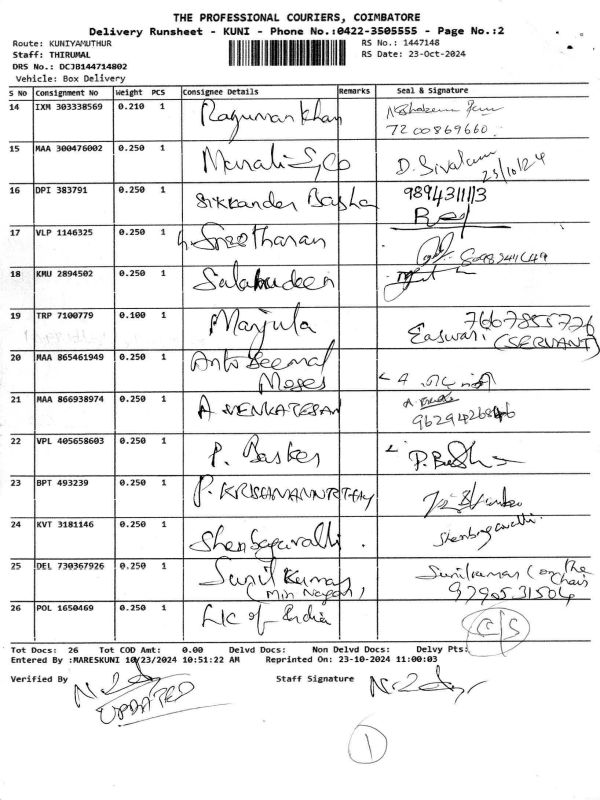 THE PROFESSIONAL COURIERS, COIMBATORE
Delivery Runsheet - KUNI - Phone No.:0422-3505555 - Page No.:2
Route: KUNIYAMUTHUR RS No.: 1447148
Staff: THIRUMAL RS Date: 23-Oct-2024
DRS No.: DCJB144714802
Vehicle: Box Delivery
S No Consignment No Weight PCS Consignee Details Remarks Seal & Signature
14 IXM 303338569 0.210 1 Ragumankhan
7200869660
15 MAA 300476002 0.250 1
16 DPI 383791 0.250 1 Sikkander Basha
17 VLP 1146325 0.250 1 Sreetharan
18 KMU 2894502 0.250 1 Salahudeen
19 TRP 7100779 0.100 1 Manjula 7667855776
Easwari (SERVANT)
20 MAA 865461949 0.250 1
Moses
21 MAA 866938974 0.250 1 A. VENKATESAN
22 VPL 405658603 0.250 1 P. Basker
23 BPT 493239 0.250 1
24 KVT 3181146 0.250 1 Shenbagavalli
Shenbagavalli
25 DEL 730367926 0.250 1 Sunil Kumar Sunilkumar (on the
(Min Nagar) Chair)
9790531504
26 POL 1650469 0.250 1 LIC of India C/S
Tot Docs: 26 Tot COD Amt: 0.00 Delvd Docs: Non Delvd Docs: Delvy Pts:
Entered By :MARESKUNI 10/23/2024 10:51:22 AM Reprinted On: 23-10-2024 11:00:03
Verified By Staff Signature
UPDATED
1